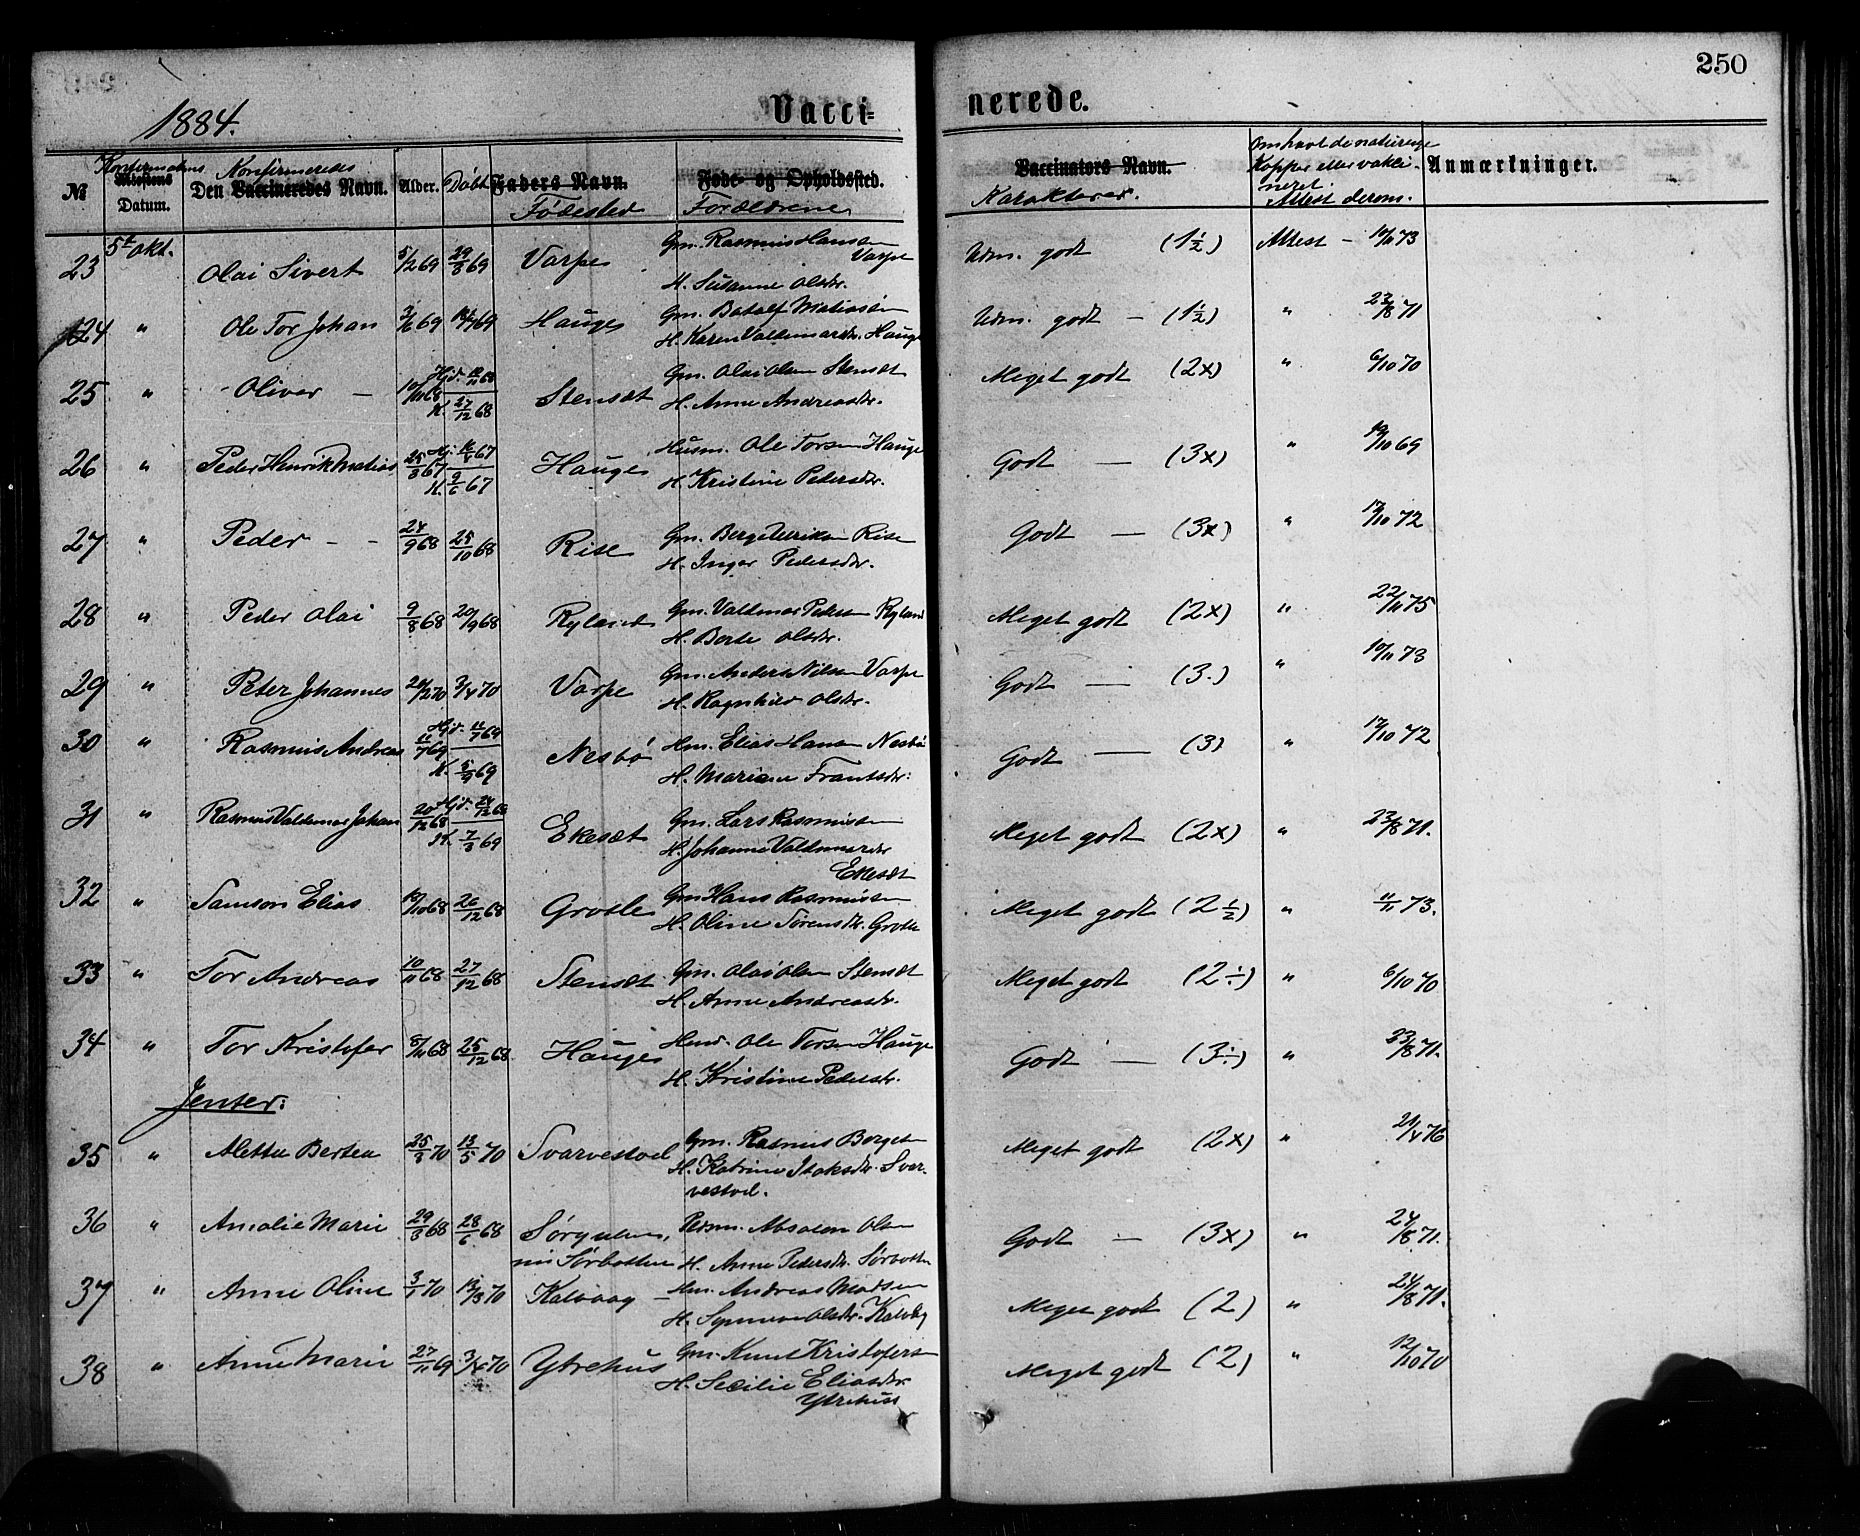 250
1884.
Vacci=
nerede.
No
Konfirmations
Attestens
Datum.
Konfirmeredes
Den Vaccineredes Navn.
Alder.
Døbt
Faders Navn.
Fødested
Føde- og Opholdssted.
Forældrene
Vaccinators Navn.
Karakterer.
Om havt de naturlige
Kopper eller vakci-
neret.
Attest derom.
Anmærkninger.
23 5te Okt. Olai Sivert 5/2 69 29/3 69 Varpe Gm. Rasmus Hansen Varpe Udm. godt (1½) Attest – 11/11 73
H. Susanne Olsdr.
24 " Ole Tor Johan 3/6 69 69 Hauge Gm. Botolf Matiassen Udm. godt – (1½) " 23/8 71
H. Karen Valdemarsdr. Hauge
25 " Oliver – 10/11 68 Hjd. 12/11 68 Stensæt Gm. Olai Olsen Stensæt Meget godt (2x) " 6/10 70
K. 27/12 68 H. Anne Andreasdr.
26 " Peder Henrik Matias 25/3 67 Hj. 67 Hauge Husm. Ole Torsen Hauge Godt – (3x) " 19/10 69
K. 9/6 67 H. Kristine Pedersdr.
27 " Peder – – 24/9 68 25/10 68 Rise Gm. Rise Godt – (3x) " 17/10 72
H. Inger Pedersdr.
28 " Peder Olai 9/8 68 20/9 68 Ryland Gm. Valdemar Peders. Ryland Meget godt (2x) " 22/11 75
H. Berte Olsdr.
29 " Peter Johannes 24/2 70 3/4 70 Varpe Gm. Anders Nilsen Varpe Godt – (3.) " 10/11 73
H. Ragnhild Olsdr.
30 " Rasmus Andreas 11/7 69 Hjd. 11/7 69 Nesbø Hm. Elias Hansen Nesbø Godt – (3) " 17/10 72
K. 5/9 69 H. Mariane Frantsdr.
31 " Rasmus Valdemar Johan 20/12 68 Hjd. 24/12 68 Ekesæt Gm. Lars Rasmussen Meget godt (2x) " 23/8 71.
K. 7/3 69 H. Johanne Valdemarsdr.
Ekesæt
32 " Samson Elias 10/10 68 26/12 68 Grotle Gm. Hans Rasmussen Meget godt (2½) " 11/11 73.
H. Oline Sørensdr. Grotle
33 " Tor Andreas 10/11 68 27/12 68 Stensæt Gm. Olai Olsen Stensæt Meget godt (2÷) " 6/10 70
H. Anne Andreasdr.
34 " Tor Kristofer 8/11 68 25/12 68 Hauge Ole Torsen Hauge Godt – (3÷) " 23/8 71.
H. Kristine Pedersdr.
Jenter:
35 " Alette Bertea 25/3 70 13/5 70 Svarvestvel Gm. Rasmus Børgesen Meget godt (2x) " 21/4 76
H. Katrine Isaksdr. Svar-
vestvel.
36 " Amalie Marie 29/3 68 28/6 68 Absalon Olsen Godt – (3x) " 24/8 71.
H. Anne Pedersdr. Sørbotten
37 " Anne Oline 3/1 70 13/3 70 Kalvaag – Hm. Andreas Madsen Meget godt (2) " 24/8 71.
H. Synneve Olsdr. Kalvåg
38 " Anne Marie 27/11 69 3/4 70 Ytrehus Gm. Knut Kristofers. Meget godt (2) " 12/10 70
H. Secilie Eliasdr.
Ytrehus